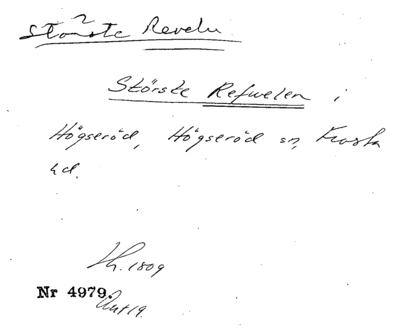 Största Reveln
Störste Refwelen i
Högseröd, Högseröd sn, Frosta
hd.
Lh. 1809
Nr 4979.
Akt 19.